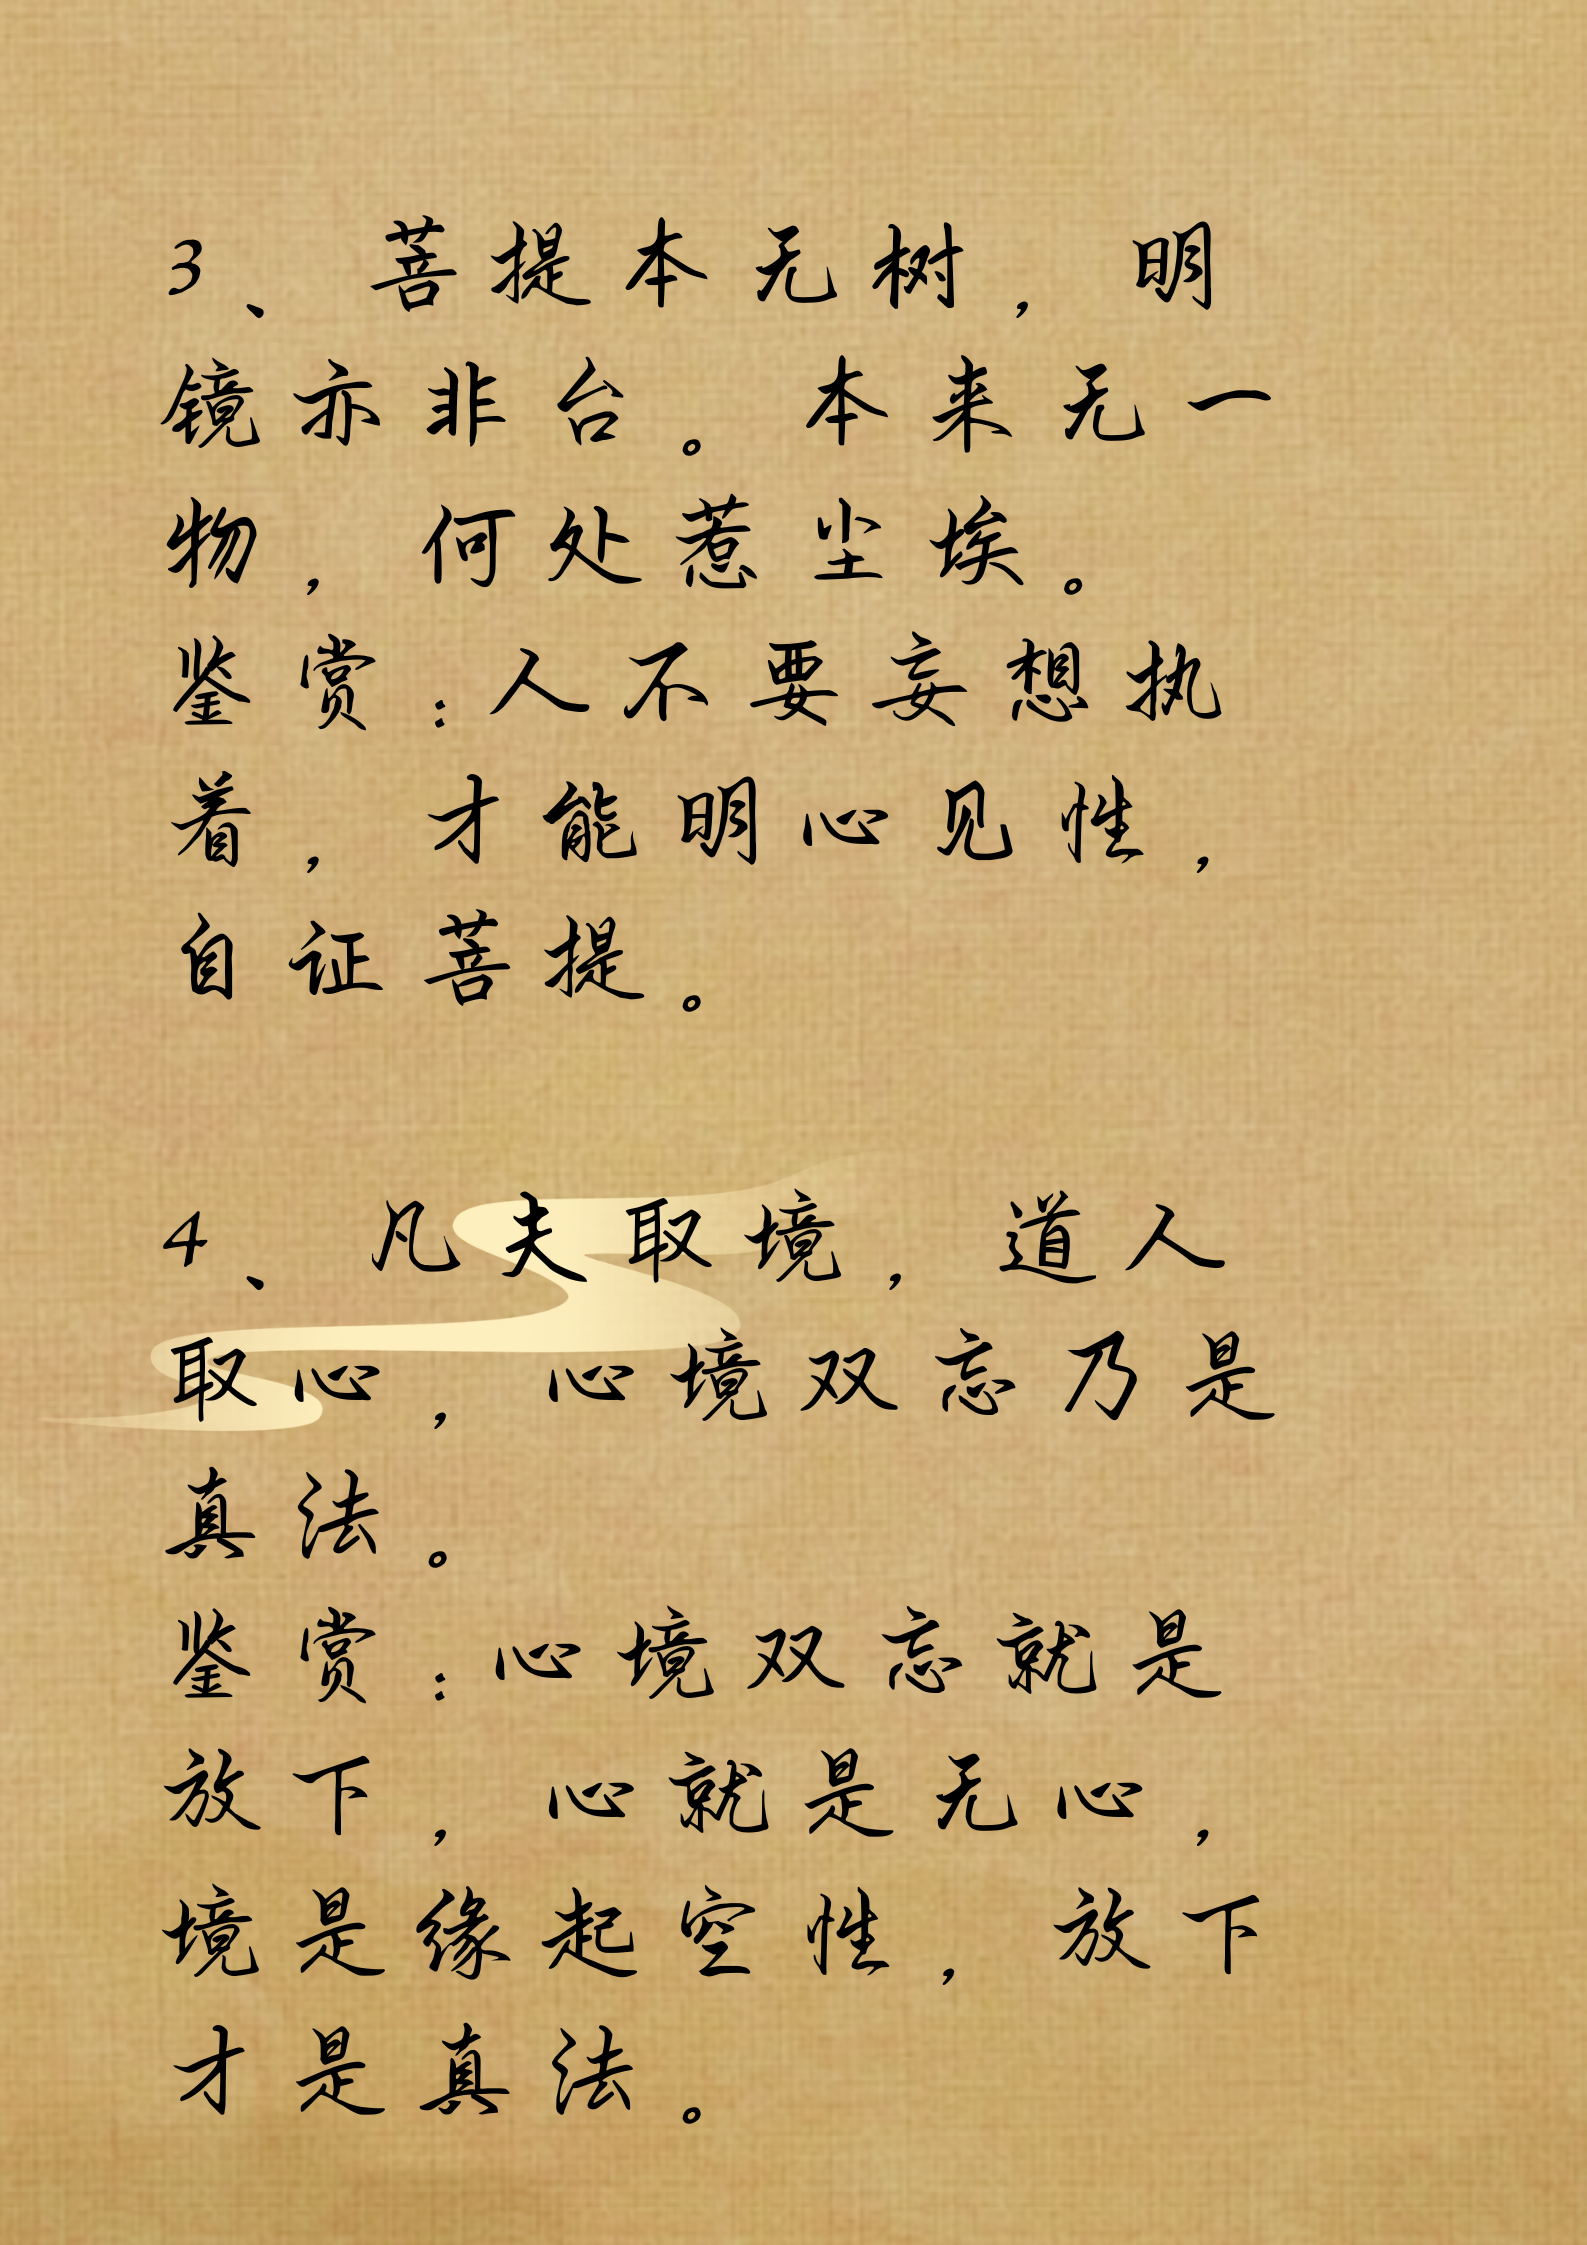 3、菩提本无树，明
镜亦非台。本来无一
物，何处惹尘埃。
鉴赏：人不要妄想执
着，才能明心见性，
自证菩提。
4、凡夫取境，道人
取心，心境双忘乃是
真法。
鉴赏：心境双忘就是
放下，心就是无心，
境是缘起空性，放下
才是真法。